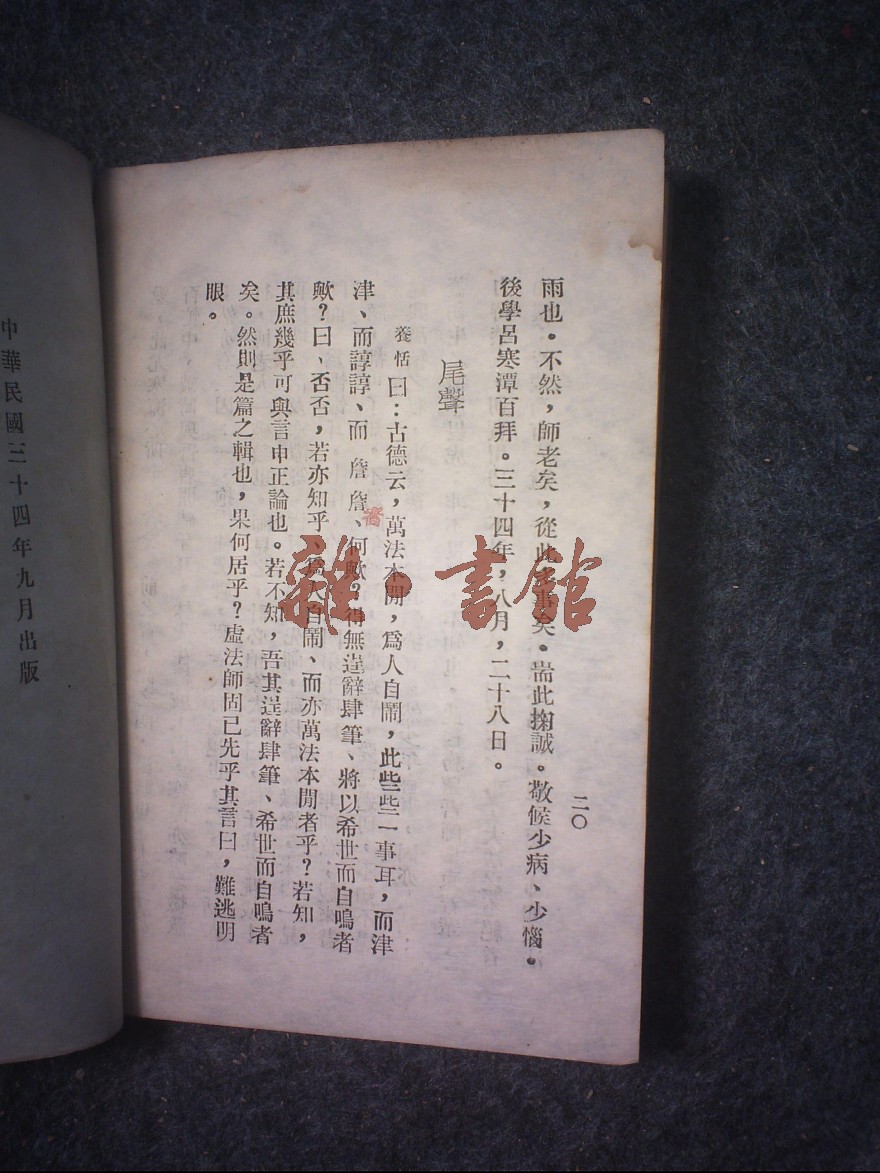 雨也。不然，師老矣，從此多事矣。耑此掬誠。敬候少病、少惱。
後學呂寒潭百拜。三十四年，八月，二十八日。
尾聲
養恬曰：古德云，萬法本閒，爲人自鬧，此些些一事耳，而津
津、而諄諄、而詹詹、何歟？得無逞辭肆筆、將以希世而自鳴者
歟？曰、否否，若亦知乎、爲人自鬧、而亦萬法本閒者乎？若知，
其庶幾乎可與言申正論也。若不知，吾其逞辭肆筆、希世而自鳴者
矣。然則是篇之輯也，果何居乎？虛法師固已先乎其言曰，難逃明
眼。
二〇
中華民國三十四年九月出版
雜·書館